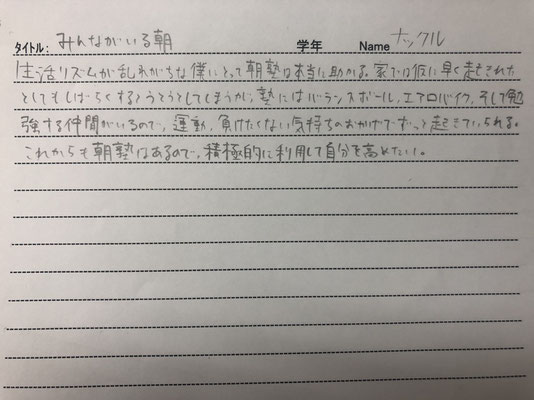 タイトル: みんながいる朝 学年 Name ナックル
生活リズムが乱れがちな僕にとって朝塾は本当に助かる。家では仮に早く起きれた
としてもしばらくするとうとうとしてしまうが、塾にはバランスボール、エアロバイク、そして勉
強する仲間がいるので、運動、負けたくない気持ちのおかげでずっと起きていられる。
これからも朝塾はあるので、積極的に利用して自分を高めたい。